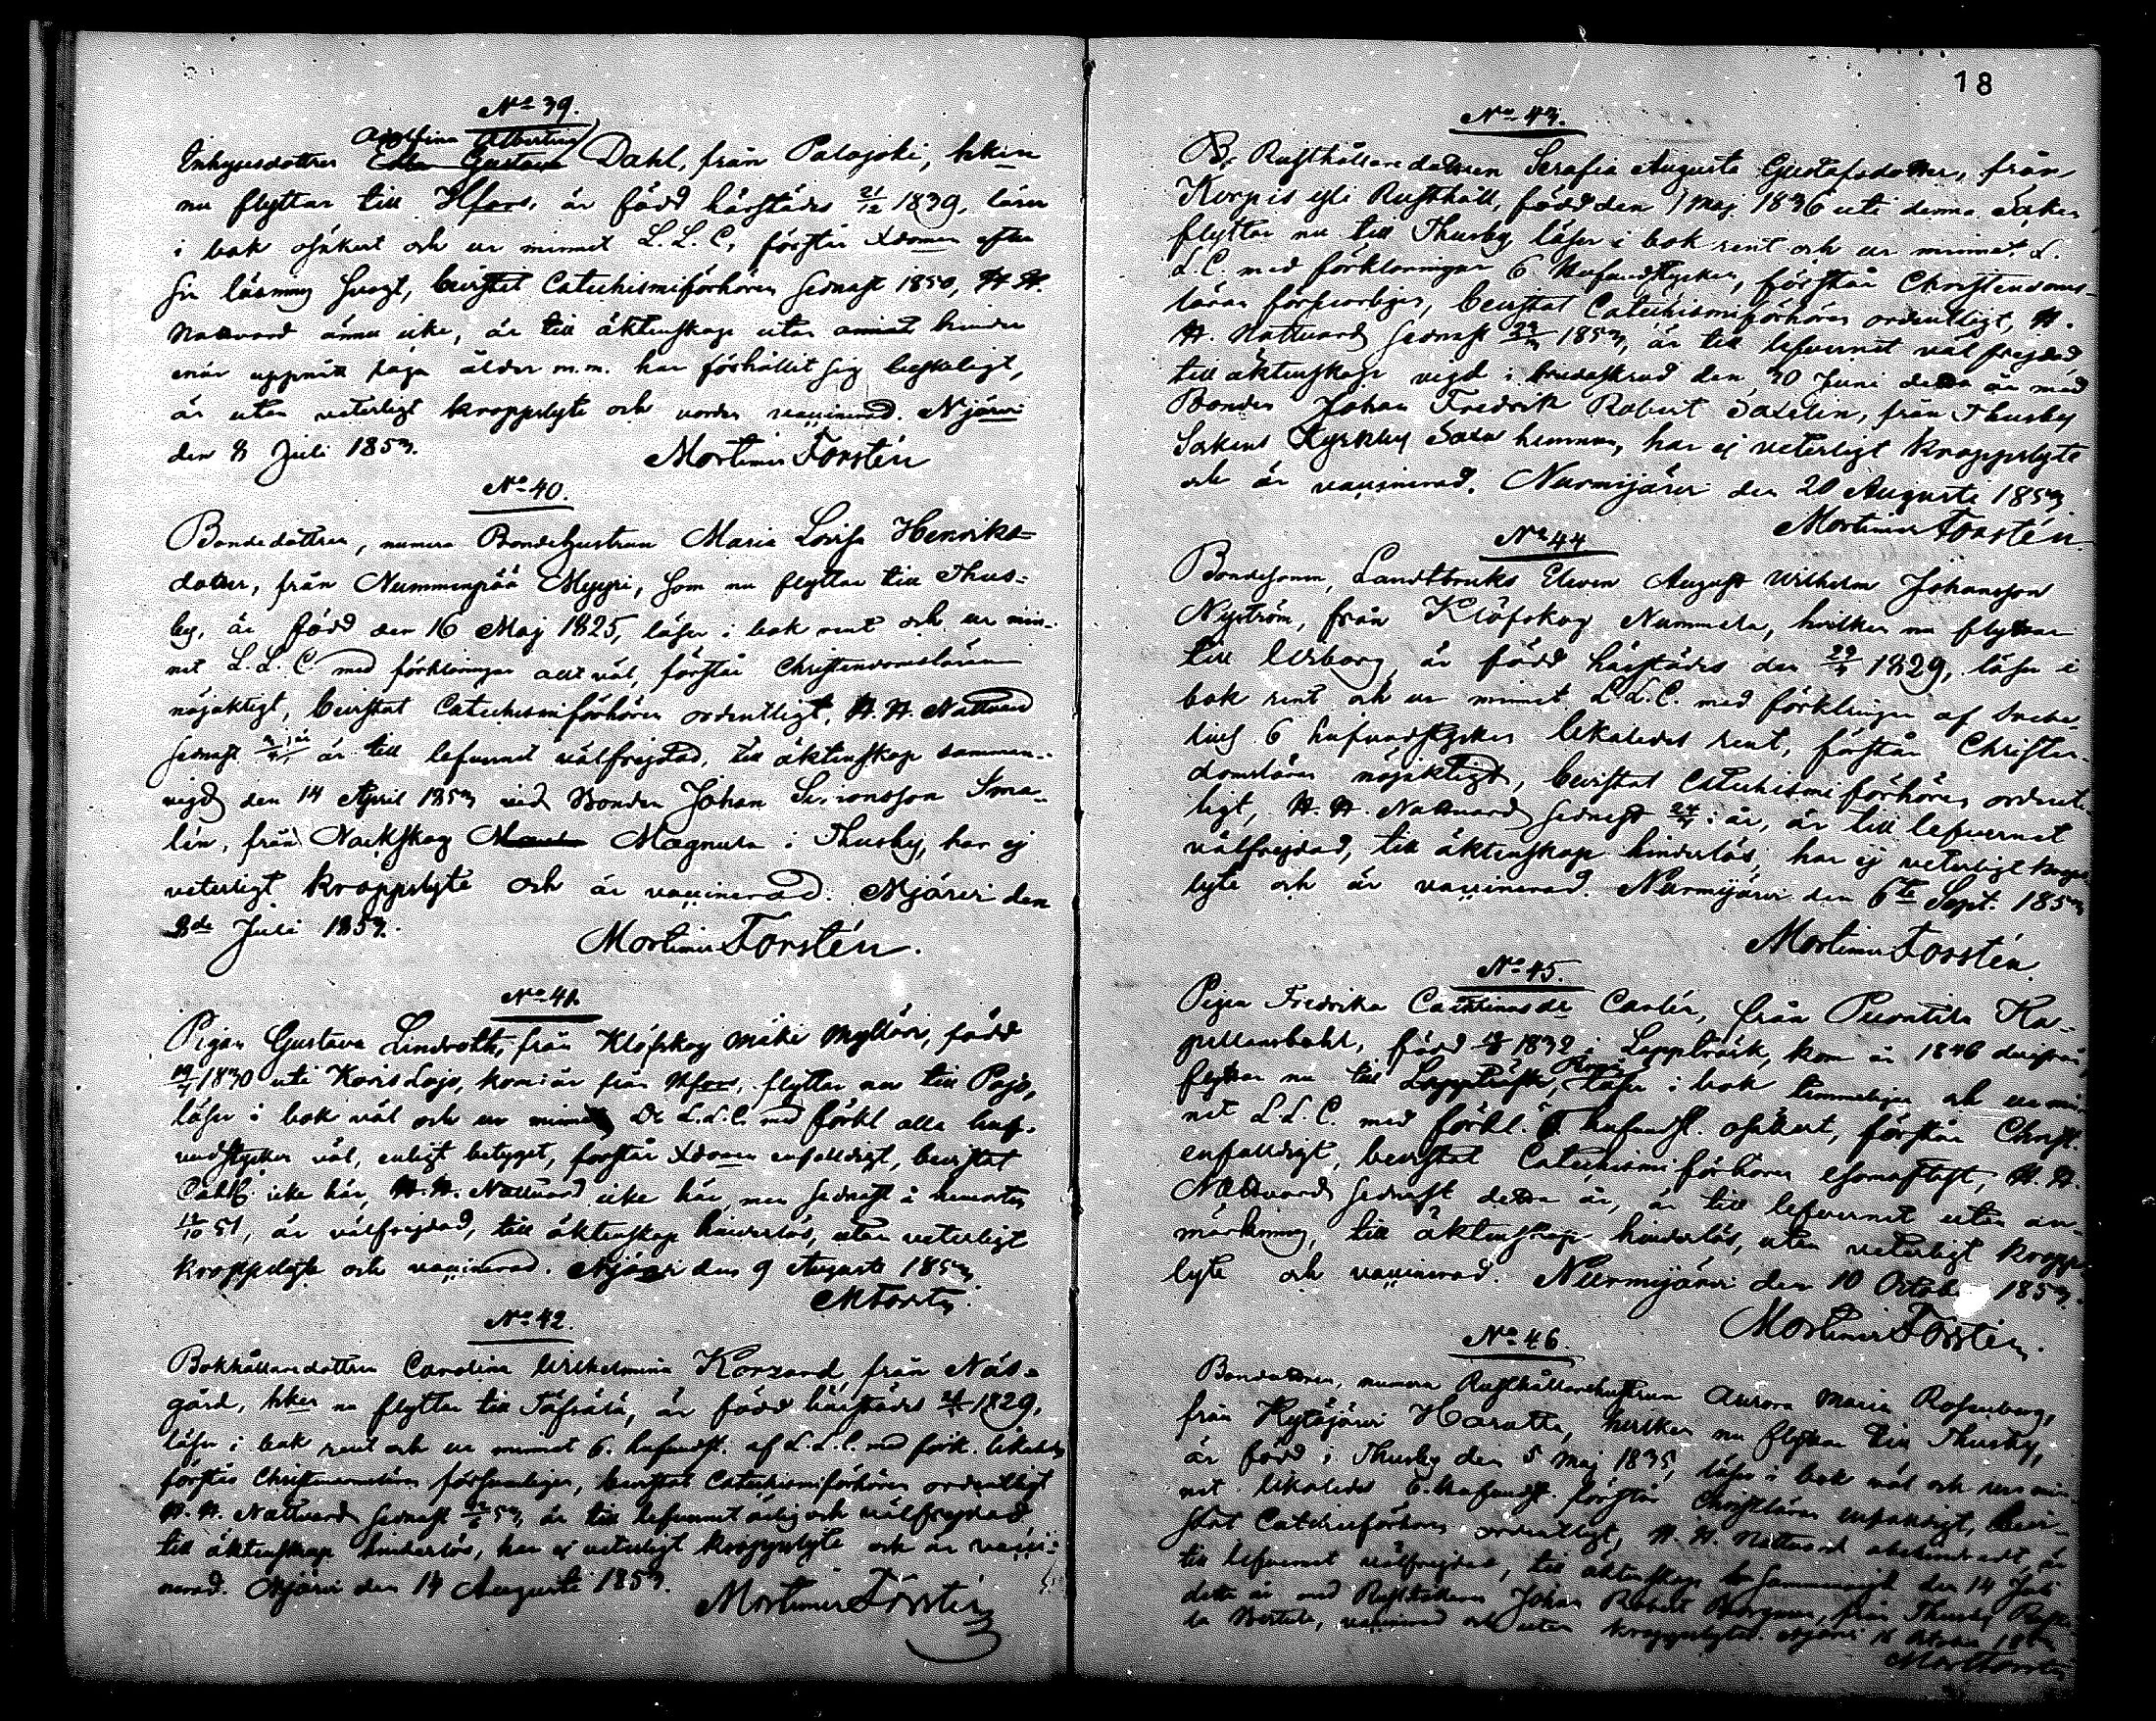 No 39.
Adolfina Albertina
Inhysesdottren Edla Gustava Dahl, från Palojoki, hkin
nu flyttar till Hfors, är född härstädes 21/12 1839, läser
i bok osäkert och ur minnet L. L. C, förstår Xdomen efter
sin läsning svagt, bevistat Catechismiförhören sednast 1850, H. H.
Nattvard ännu icke, är till äktenskap utan annat hinder
uppnått laga ålder m.m. har förhållit sig beskedligt,
är utan veterligt kroppslyte och vorden vaccinerad. Njärvi
den 8 Juli 1853.
Mortimer Forstén
No 40.
Bondedottren, numera Bondehustrun Maria Lovisa Henriks-
dotter, från Nummenpää Myyri, som nu flyttar till Thus-
by, är född den 16 Maj 1825, läser i bok rent och ur min-
net L. L. C med förklaringar allt väl, förstår Christendomsläran
nöjaktigt, bevistat Catechismiförhören ordentligt, H. H. Nattvard
sednast i år är till lefvernet välfrejdad, till äktenskap samman-
vigd den 14 April 1853 med Bonden Johan Simonsson Sma-
lén, från Nackskog Magnula i Thusby, har ej
veterligt kroppslyte och är vaccinerad. Njärvi den
8de Juli 1853.
Mortimer Forstén.
No 41
Pigan Gustava Lindroth, från Klöfskog Mäki Myllöri, född
1830 uti Karislojo, kom i år från Hfors, flyttar nu till Pojo,
läser i bok väl och ur minnet Dr L. L. C. med förkl alla huf-
vudstycken väl, enligt betyget, förstår Xdomen enfaldigt, bevistat
icke här, H. H. Nattvard icke här, men sednast å hemorten
51, är välfrejdad, till äktenskap hinderlös, utan veterligt
kroppslyte och vaccinerad. Njärvi den 9 Augusti 1853.
MForstén.
No 42.
Bokhållaredottren Carolina Wilhelmina Korzand från Näs-
gård, hken nu flyttar till Töfsalá, är född härstädes 1829,
läser i bok rent och ur minnet 6. hufvudst. af L. L. C. med förk. likaledes
förstår Christendomsläran försvarligen, bevistat Catechismiförhören ordentligt
H. H. Nattvard sednast 53, är till lefvernet ärlig och välfrejdad
till äktenskap hinderlös, har ej veterligt kroppslyte och är vacci-
nerad. Njärvi den 14 Augusti 1853.
Mortimer Forstén
18
No 43.
Rusthållaredottren Serafia Augusta Gustafsdotter, från
Korpis Rusthåll, född den 1 Maj 1836 uti denna Socken
flyttar nu till Thusby läser i bok rent och ur minnet L.
L. C. med förklaringar 6 Hufvudstycken, förstår Christendoms-
läran försvarligen, bevistat Catechismiförhören ordentligt, H.
H. Nattvard sednast 1853, är till lefvernet välfrejdad
till äktenskap vigd i brudaskrud den 30 Juni detta år med
Bonden Johan Fredrik Robert Saxelin, från Thusby
Sockens Kyrkby Saxa hemman, har ej veterligt kroppslyte
och är vaccinerad. Nurmijärvi den 20 Augusti 1853
Mortimer Forstén.
No 44
Bondesonen, Landtbruks Eleven August Wilhelm Johansson
Nyström, från Klöfskog Nummela, hvilken nu flyttar
till Wiborg, är född härstädes den 1829, läser i
bok rent och ur minnet L. L. C. med förklaringar af Svebe-
lius 6 hufvudstycken likaledes rent, förstår Christen-
domsläran nöjaktigt, bevistat Catechismiförhören ordent-
ligt, H. H. Nattvard sednast i år, är till lefvernet
välfrejdad, till äktenskap hinderlös, har ej veterligt kropps-
lyte och är vaccinerad. Nurmijärvi den 6te Sept. 1853
Mortimer Forstén.
No 45.
Pigan Fredrika Cathrinasdr Carlén, från Puontila Ka-
pellansbohl, född 1832 i Lappträsk, kom år 1846 derifrån,
flyttar nu till Lappträsk, läser i bok temmeligen och ur min-
net L. L. C. med förkl. 5. hufvudst. osäkert, förstår Christ.
enfaldigt, bevistat Catechismiförhören esomoftast, H. H.
Nattvard sednast detta år, är till lefvernet utan an-
märkning, till äktenskap hinderlös, utan veterligt kropps-
lyte och vaccinerad. Nurmijärvi den 10 October 1853.
Mortimer Forstén.
No 46.
Bondedottren, numera Rusthållarehustrun Aurora Maria Rosenberg,
från Kytäjärvi Haratta, hvilken nu flyttar till Thusby,
är född i Thusby den 5 Maj 1835, läser i bok väl och ur min-
net likaledes 6. hufvudst. förstår Christläran enfaldigt, bevi-
stat Catechisförhören ordentligt, H. H. Nattvard obehindradt, är
till lefvernet välfrejdad, till äktenskap sammanvigd den 14 Juli
detta år med Rusthållaren Johan Robert från Thusby
Bertula, vaccinerad och utan kroppslyte. Njärvi
Mort Forstén